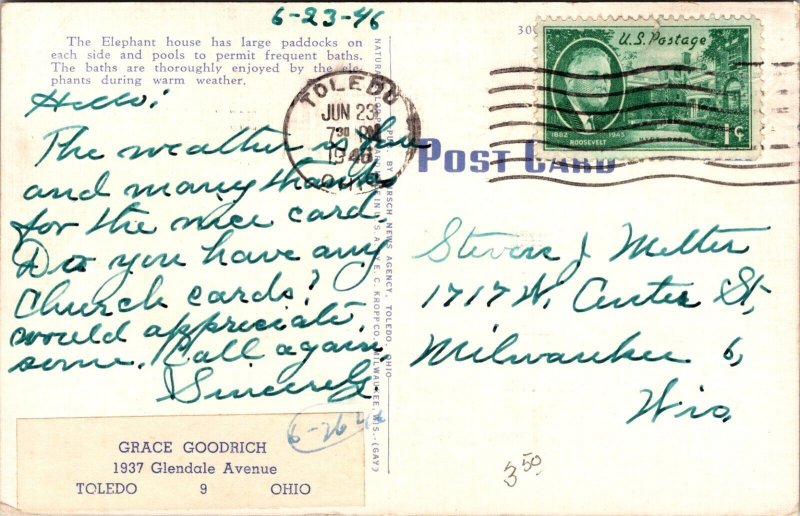 6-23-46
The Elephant house has large paddocks on
each side and pools to permit frequent baths.
The baths are thoroughly enjoyed by the ele-
phants during warm weather.
Hello:
The weather is fine
and many thanks
for the nice card.
Do you have any
Church cards?
would appreciate
some. Call again.
Sincerely
6-26-46
GRACE GOODRICH
1937 Glendale Avenue
TOLEDO 9 OHIO
TOLEDO
JUN 23
7 30 PM
1946
OHIO
PUB. BY HIRSCH NEWS AGENCY, TOLEDO, OHIO
E. C. KROPP CO., MILWAUKEE, WIS.—(GAY)
300
U.S. Postage
1882 1945
ROOSEVELT
1¢
POST CARD
Steven J Melter
1717 W. Center St,
Milwaukee 6,
Wis.
3.50